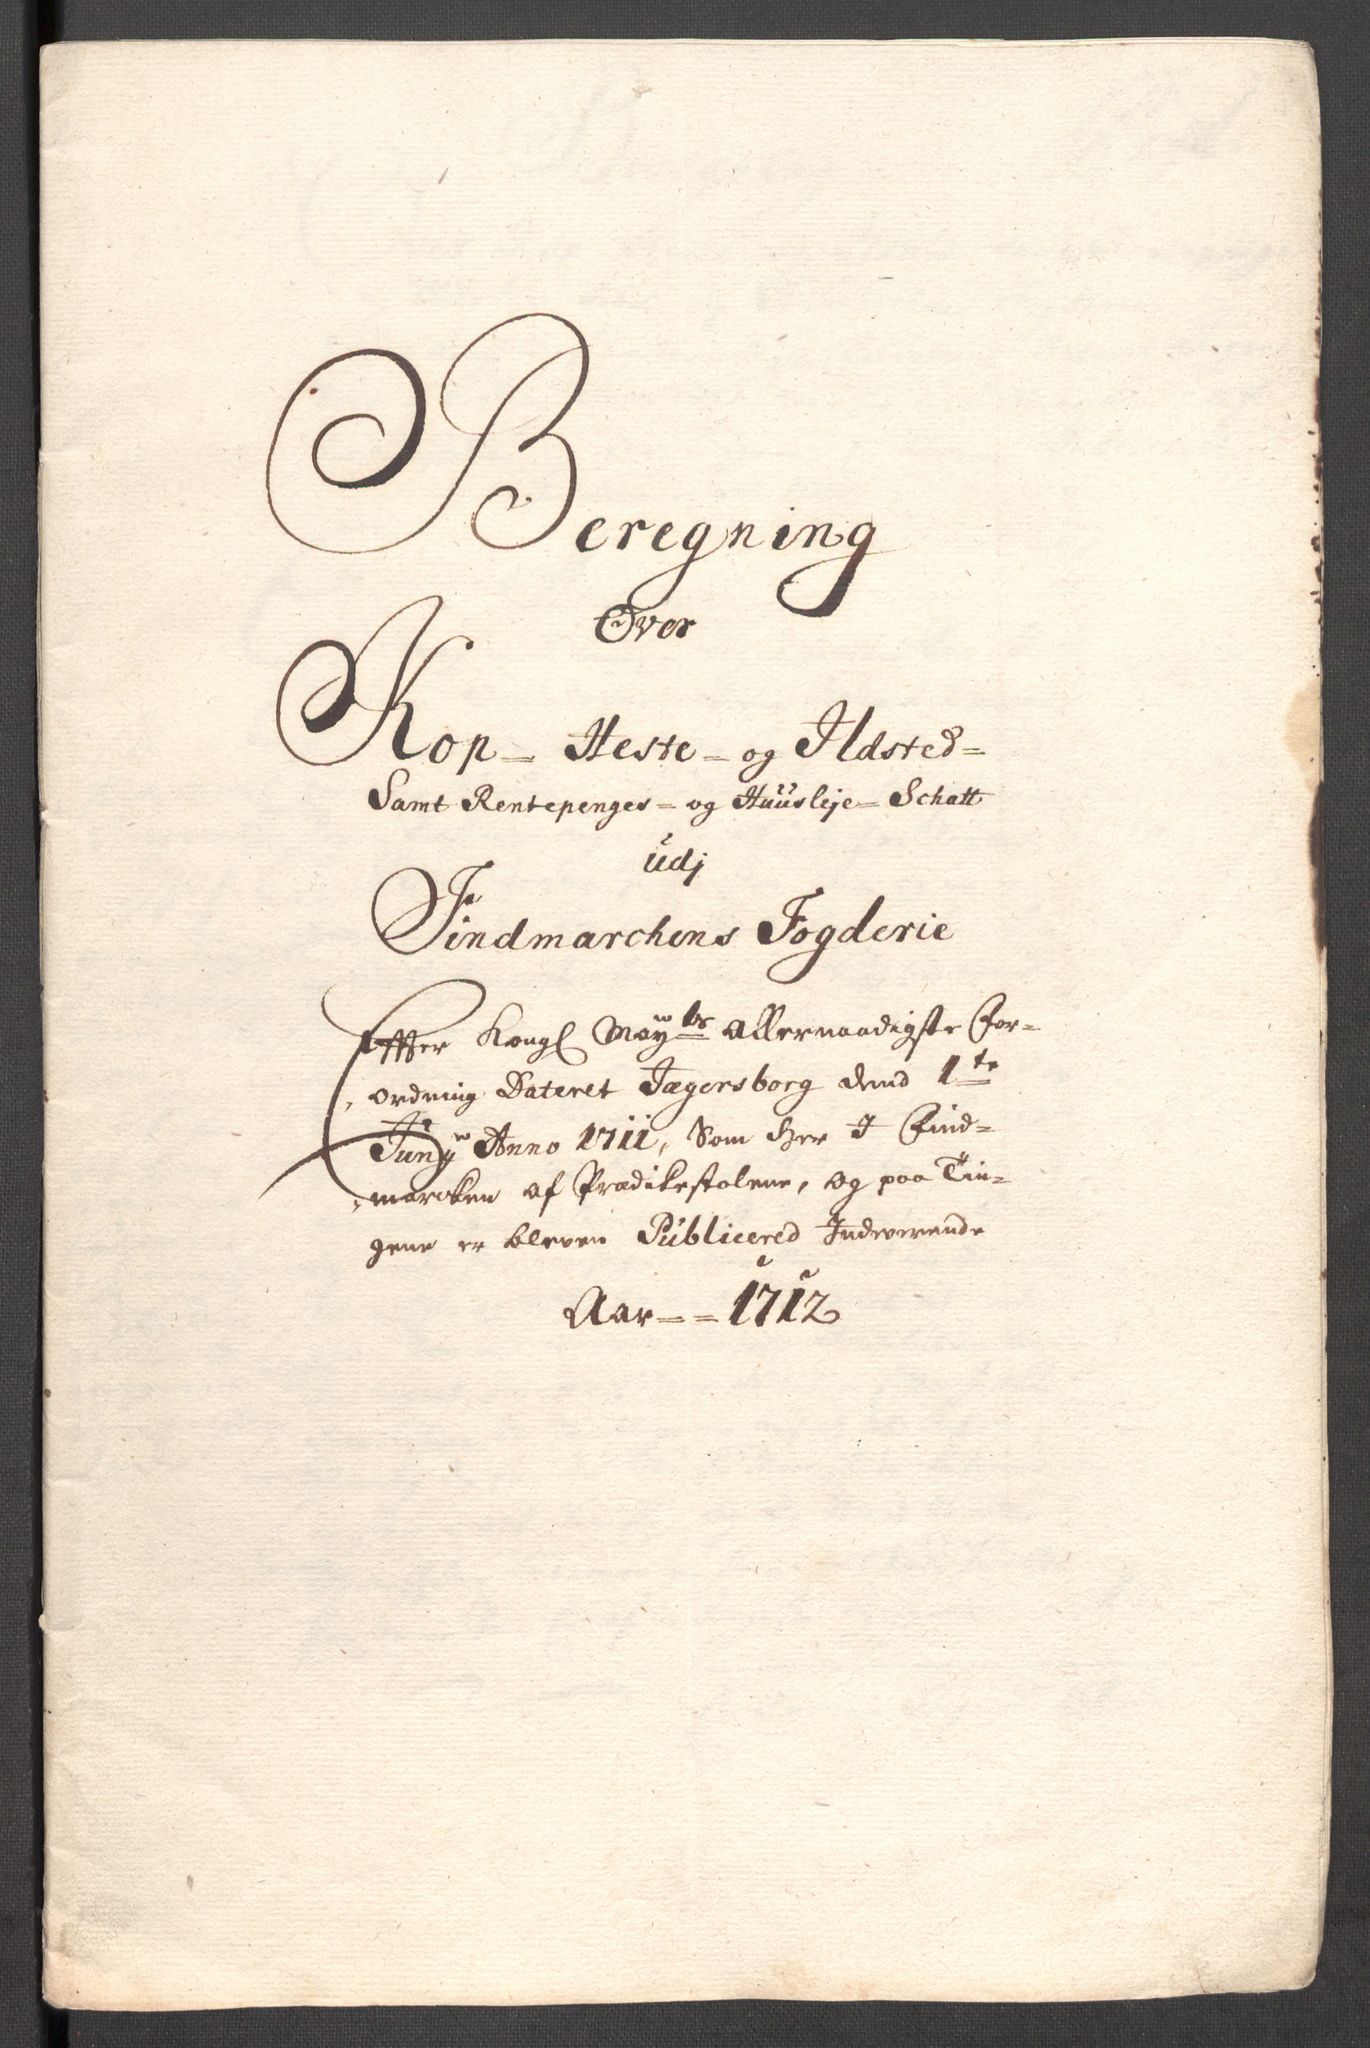 Beregning
Over
Kop- Heste- og Ildsted=
Samt Rentepenges- og Huusleje- Schatt
udj
Findmarchens Fogderie
Effter Kongl Mayts allernaadigste For-
ordning Dateret Jægersborg dend 1te
Juny Anno 1711, Som her I Find=
marcken af Prædikestolene, og paa Tin=
gene er bleven Publicered Indeverende
Aar = = 1712